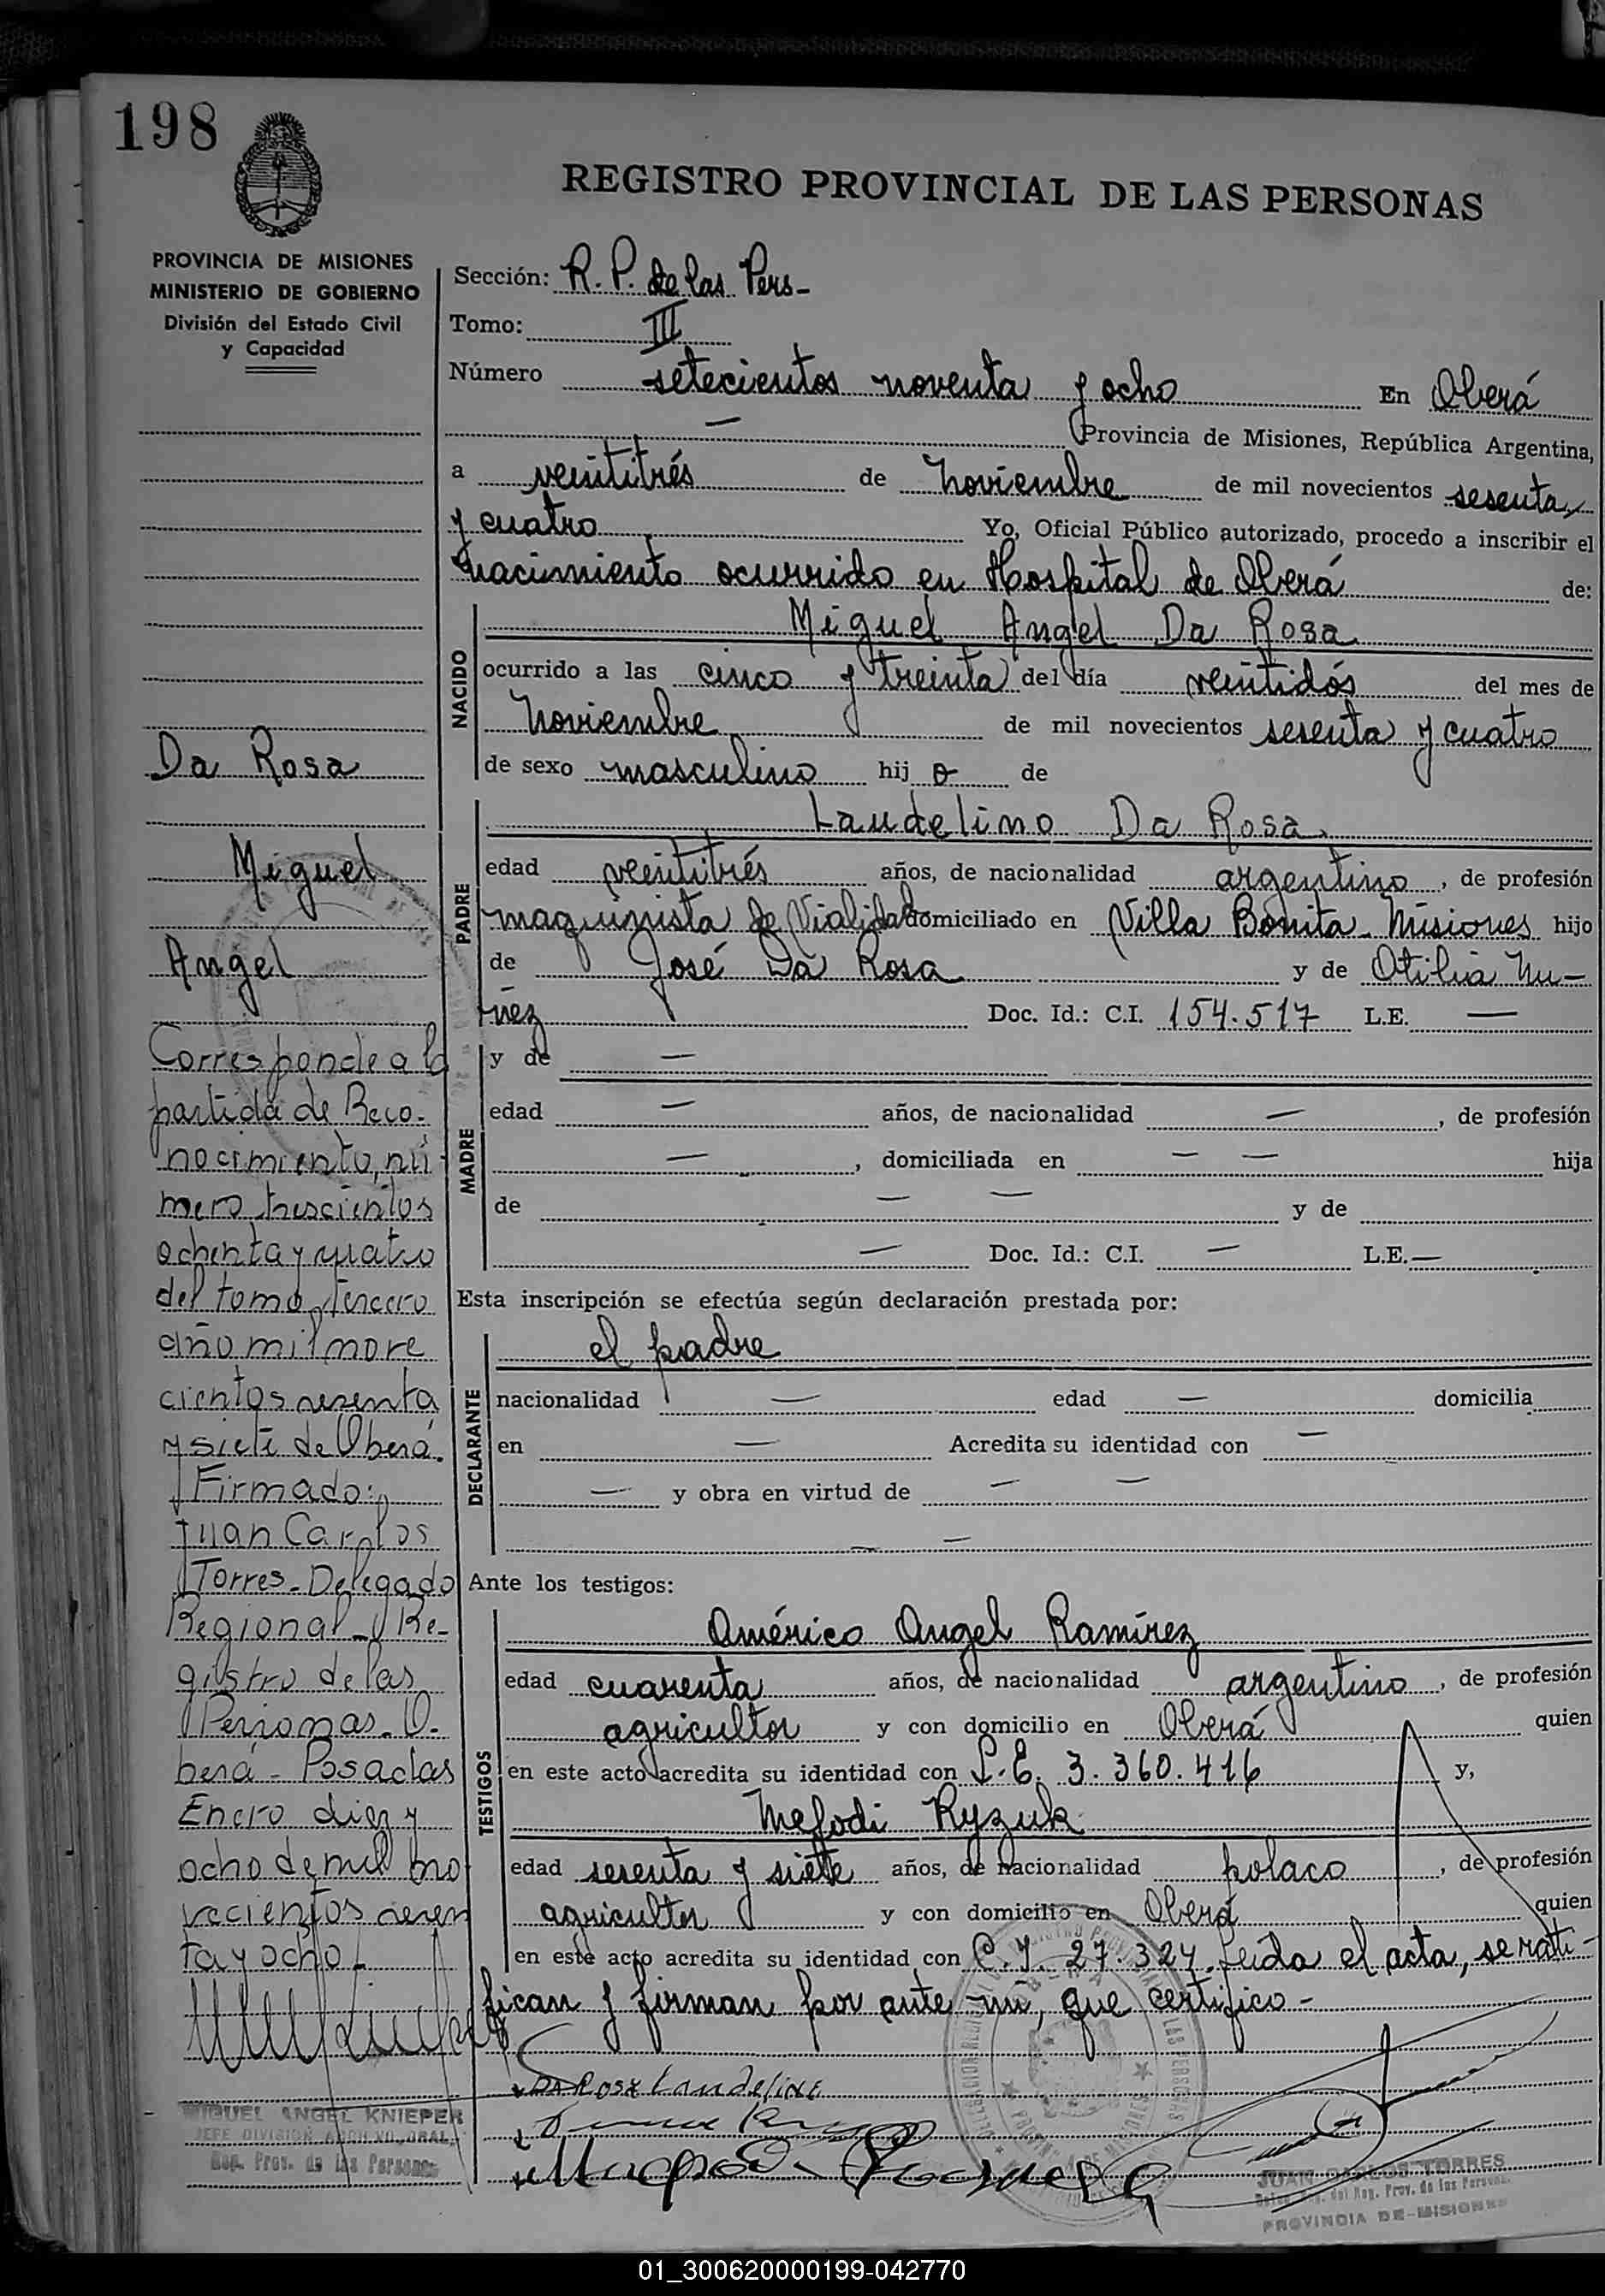 198
REGISTRO PROVINCIAL DE LAS PERSONAS
PROVINCIA DE MISIONES
MINISTERIO DE GOBIERNO
División del Estado Civil
y Capacidad
Da Rosa
Miguel
Angel
Corresponde a la
partida de Reco-
nocimiento, nú-
mero trescientos
ochenta y cuatro
del tomo Tercero
año mil nove
cientos sesenta
y siete de Oberá.
Firmado:
Juan Carlos
Torres - Delegado
Regional - Re-
gistro de las
Personas - O-
berá - Posadas
Enero diez y
ocho de mil no
vecientos sesen
ta y ocho
MIGUEL ANGEL KNIEPER
JEFE DIVISION ARCH. VO. GRAL.
Reg. Prov. de las Personas
Sección: R. P. de las Pers-
Tomo: III
Número setecientos noventa y ocho En Oberá
— Provincia de Misiones, República Argentina,
a veintitrés de Noviembre de mil novecientos sesenta
y cuatro Yo, Oficial Público autorizado, procedo a inscribir el
nacimiento ocurrido en Hospital de Oberá de:
NACIDO
Miguel Angel Da Rosa
ocurrido a las cinco y treinta del día veintidós del mes de
Noviembre de mil novecientos sesenta y cuatro
de sexo masculino hij o de
PADRE
Laudelino Da Rosa
edad veintitrés años, de nacionalidad argentino, de profesión
maquinista de Vialidad domiciliado en Villa Bonita - Misiones hijo
de José Da Rosa y de Otilia Nu-
ñez Doc. Id.: C.I. 154.517 L.E. —
MADRE
y de —
edad — años, de nacionalidad —, de profesión
—, domiciliada en — — hija
de — — y de
— Doc. Id.: C.I. — L.E. —
Esta inscripción se efectúa según declaración prestada por:
DECLARANTE
el padre
nacionalidad — edad — domicilia
en — Acredita su identidad con —
— y obra en virtud de — —
— —
Ante los testigos:
TESTIGOS
Américo Angel Ramírez
edad cuarenta años, de nacionalidad argentino, de profesión
agricultor y con domicilio en Oberá quien
en este acto acredita su identidad con L.E. 3.360.416 y,
Mefodi Ryzuk
edad sesenta y siete años, de nacionalidad polaco, de profesión
agricultor y con domicilio en Oberá quien
en este acto acredita su identidad con C.I. 27.324. Leída el acta, se rati-
fican y firman por ante mí, que certifico -
Da Rosa Laudelino
JUAN CARLOS TORRES
Reg. del Reg. Prov. de las Personas
PROVINCIA DE MISIONES
01_300620000199-042770